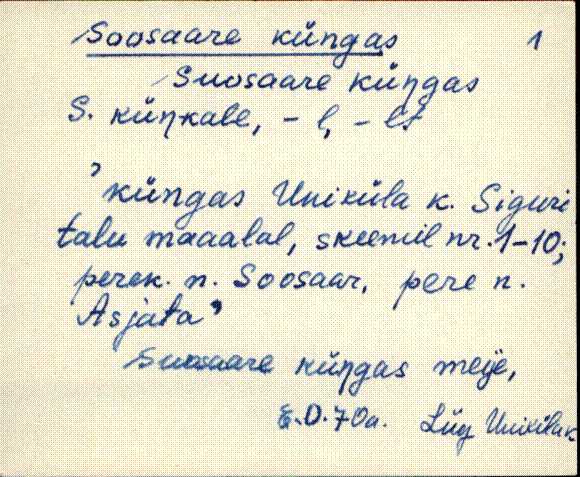 Soosaare küngas 1
Suosaare küŋgas
S. küŋkale, - l, - lt
, küngas Uniküla k. Siguri
talu maaalal, skeemil nr. 1-10;
perek. n. Soosaar, pere n.
Asjata"
Suosaare küŋgas meije,
E.O. 70a. Lüg Uniküla k